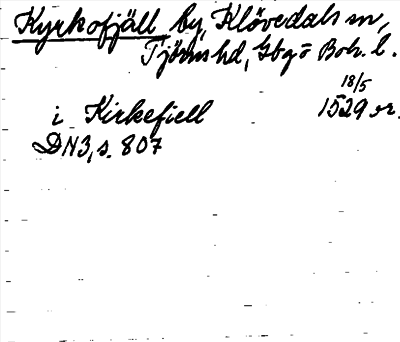 Kyrkofjäll by, Klövedals sn,
Tjörns hd, Gbg o Boh. l.
18/5
i Kirkefiell 1529 or.
DN3, s. 807